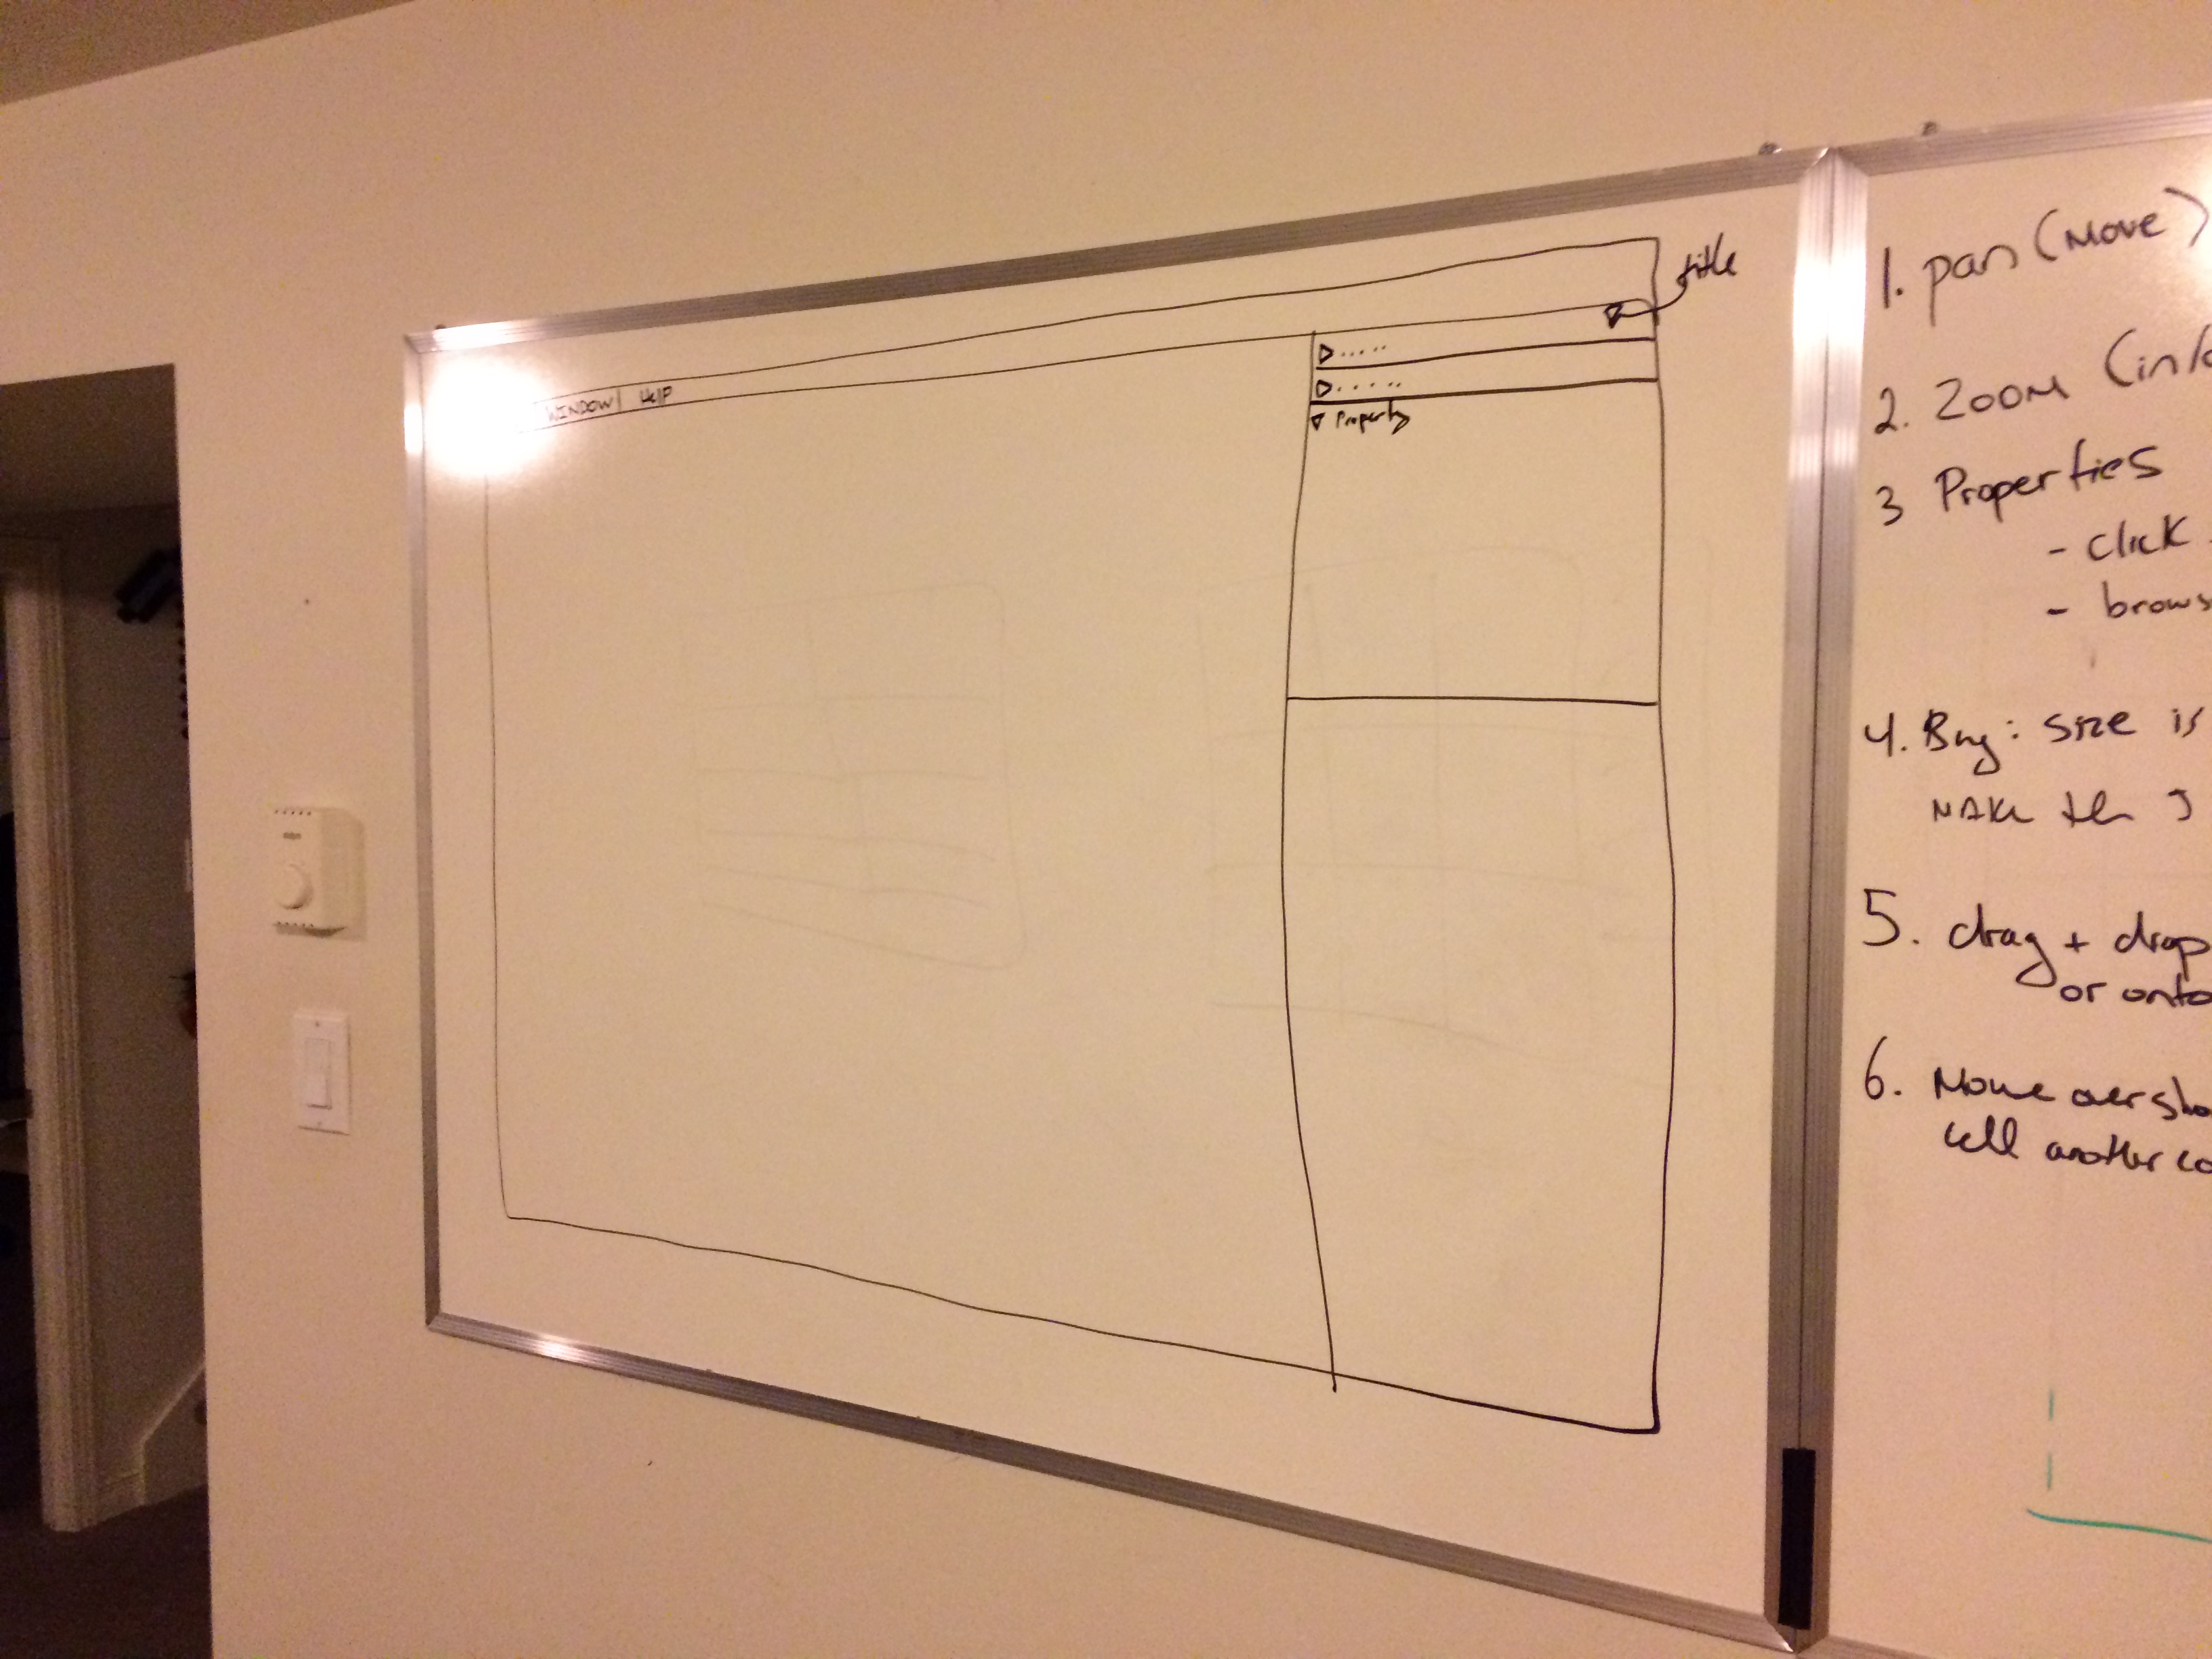 title
WINDOW Help
▷ .....
▷ .....
▽ Property
1. pan (Move)
2. Zoom (in/
3 Properties
- click
- brows
4. Bug: size is
make the
5. drag + drop
or onto
6. Mouse over sho
cell another co